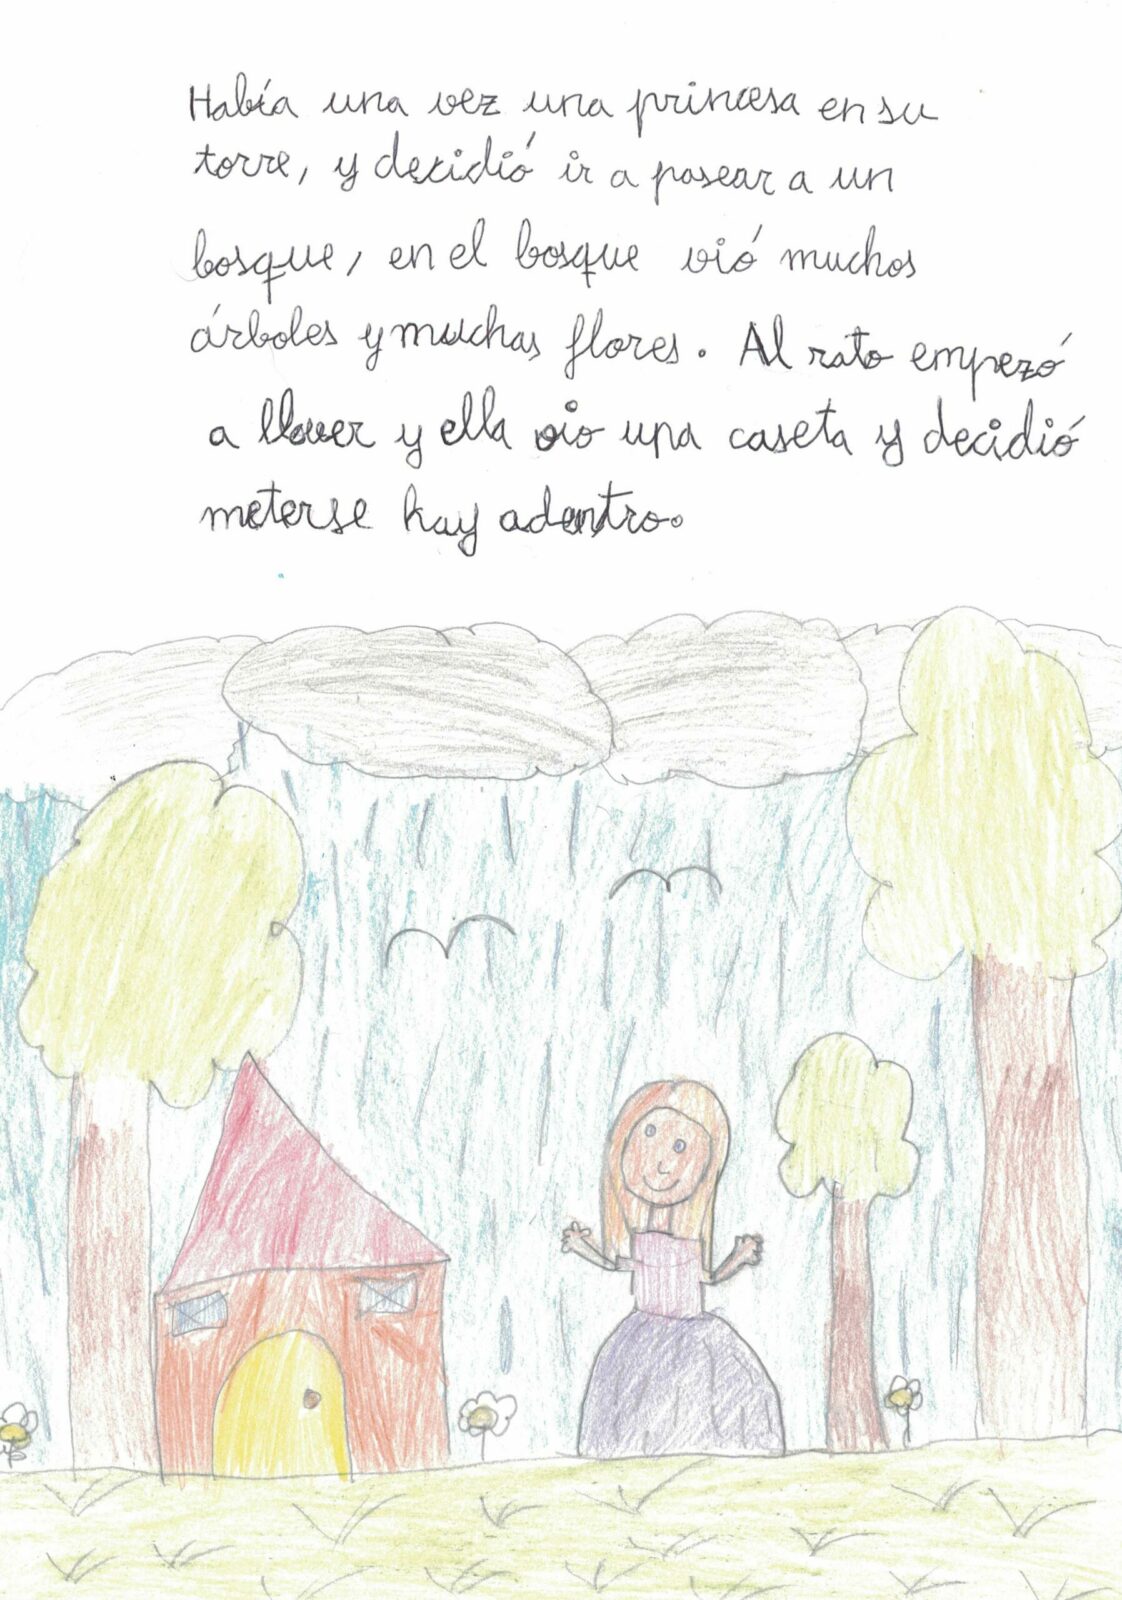 Había una vez una princesa en su
torre, y decidió ir a pasear a un
bosque, en el bosque vió muchos
árboles y muchas flores. Al rato empezó
a llover y ella vio una caseta y decidió
meterse hay adentro.